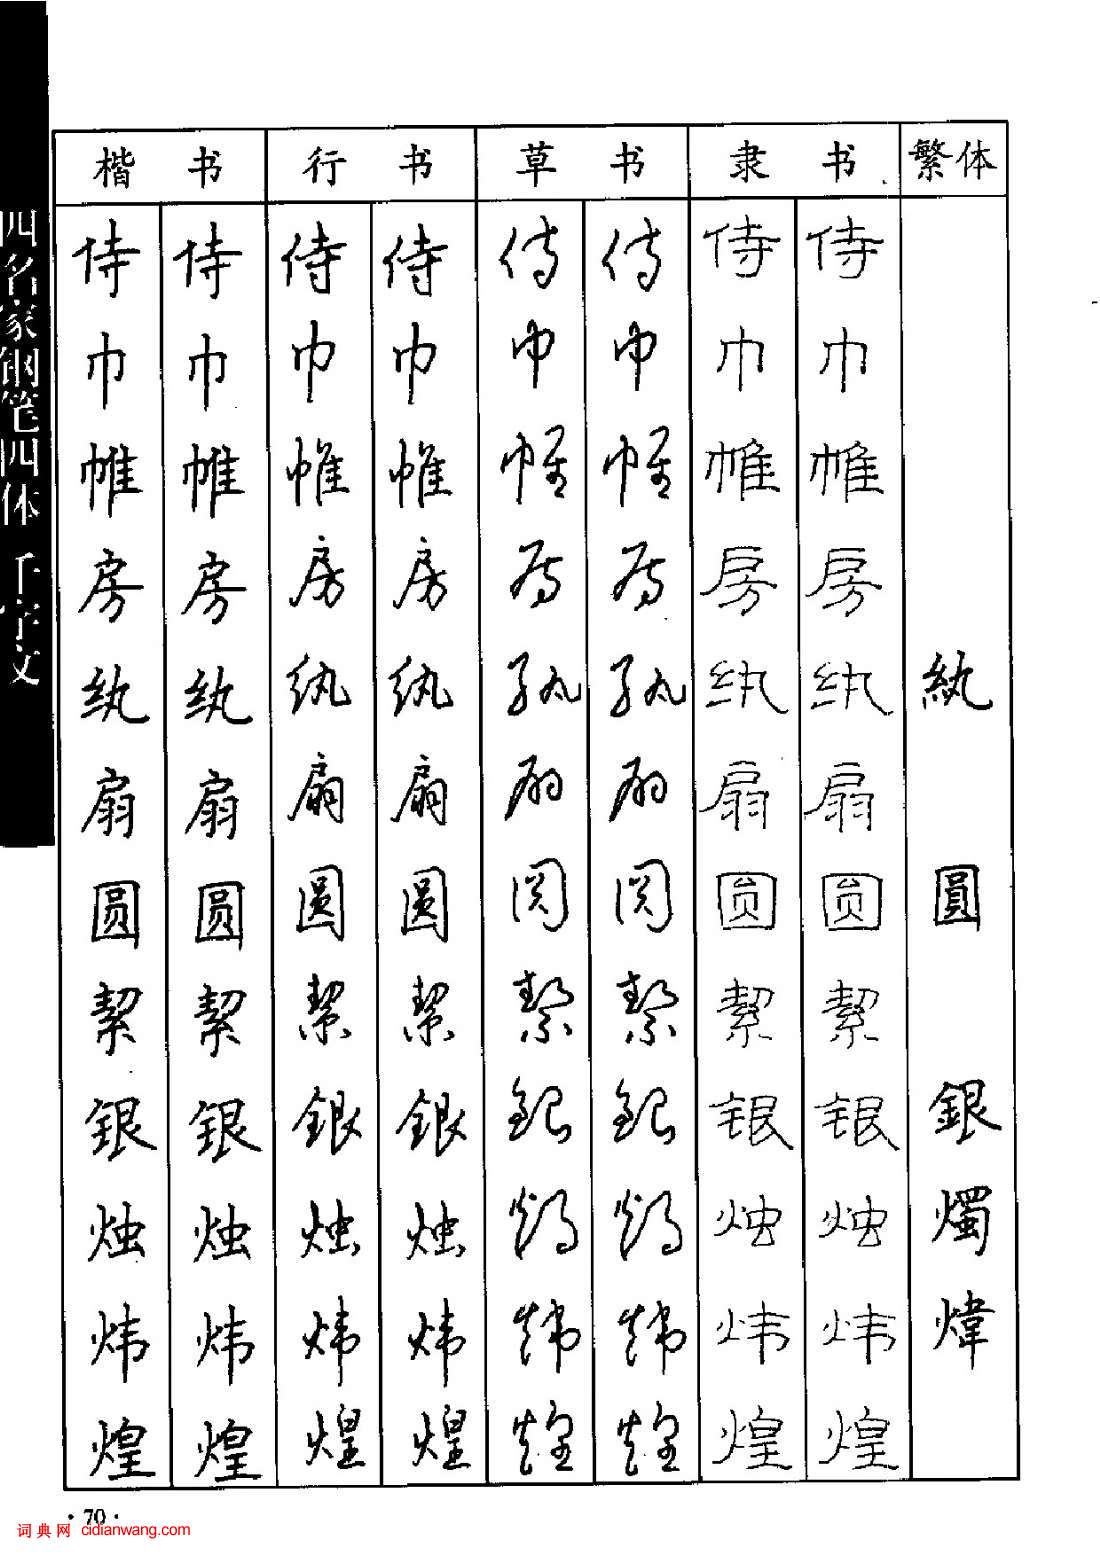 四名家钢笔四体 千字文
楷书 行书 草书 隶书 繁体
侍 侍 侍 侍 侍 侍 侍 侍
巾 巾 巾 巾 巾 巾 巾 巾
帷 帷 帷 帷 帷 帷 帷 帷
房 房 房 房 房 房 房 房
纨 纨 纨 纨 纨 纨 纨 纨 紈
扇 扇 扇 扇 扇 扇 扇 扇
圆 圆 圆 圆 圆 圆 圆 圆 圓
絜 絜 絜 絜 絜 絜 絜 絜
银 银 銀 銀 银 银 银 银 銀
烛 烛 烛 烛 烛 烛 烛 烛 燭
炜 炜 炜 炜 炜 炜 炜 炜 煒
煌 煌 煌 煌 煌 煌 煌 煌
·70·
词典网 cidianwang.com